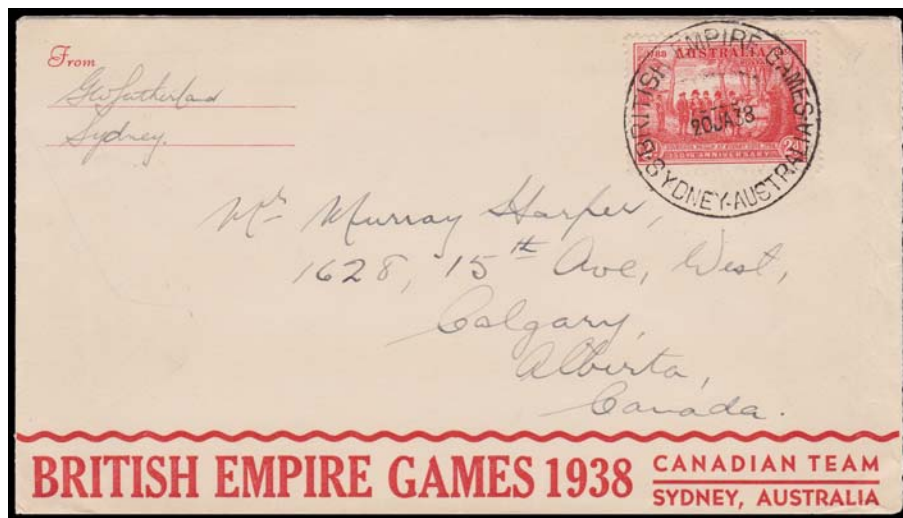 From
Geo Sutherland
Sydney.
AUSTRALIA
2d
150TH ANNIVERSARY
BRITISH EMPIRE GAMES
20JA38
SYDNEY-AUSTRALIA
Mr Murray Harper,
1628, 15th Ave, West,
Calgary,
Alberta,
Canada.
BRITISH EMPIRE GAMES 1938
CANADIAN TEAM
SYDNEY, AUSTRALIA